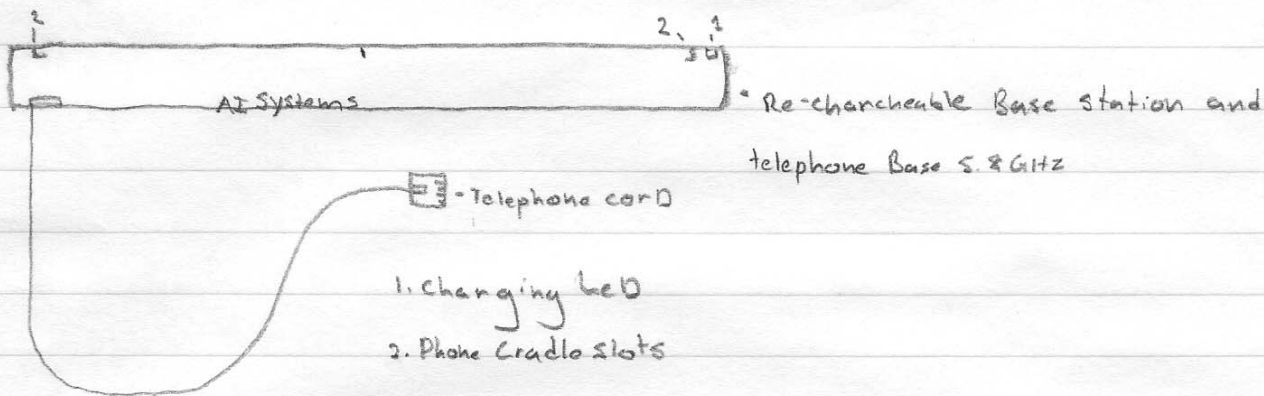 2
2. 1
AI Systems
• Re-charcheable Base station and
telephone Base 5.8 GHz
- Telephone corD
1. Charging LeD
2. Phone Cradle slots